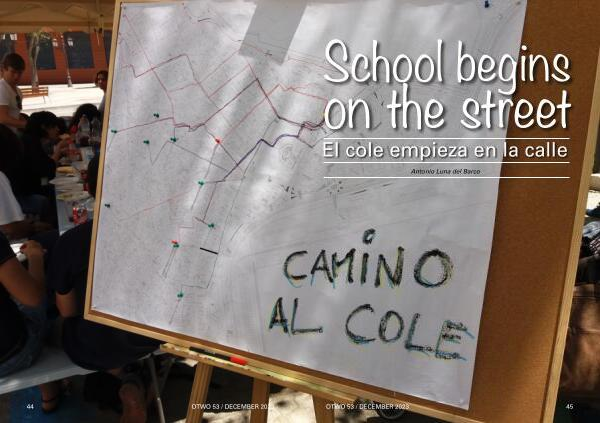 School begins
on the street
El cole empieza en la calle
Antonio Luna del Barco
CAMINO
AL COLE
44
OTWO 53 / DECEMBER 2023
OTWO 53 / DECEMBER 2023
45